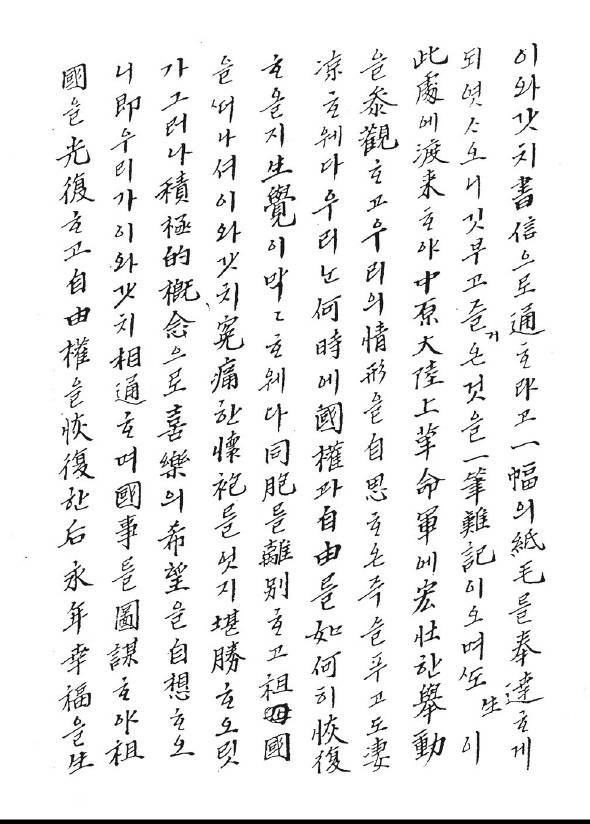 이와갓치書信으로通ᄒᆞ랴고一幅의紙毛를奉達ᄒᆞ게
되엿ᄉᆞ오니깃부고즐거온것을一筆難記이오며ᄯᅩ生이
此處에渡來ᄒᆞ야中原大陸上革命軍에宏壯한擧動
을叅觀ᄒᆞ고우리의情形을自思ᄒᆞ온즉슬푸고도凄
凉ᄒᆞ웨다우리난何時에國權과自由를如何히恢復
ᄒᆞ올지生覺이막〻ᄒᆞ웨다同胞를離別ᄒᆞ고祖國
을ᄯᅥ나셔이와갓치寃痛한懷袍를엇지堪勝ᄒᆞ오릿
가그러나積極的槪念으로喜樂의希望을自想ᄒᆞ오
니即우리가이와갓치相通ᄒᆞ며國事를圖謀ᄒᆞ야祖
國을光復ᄒᆞ고自由權을恢復한后永年幸福을生